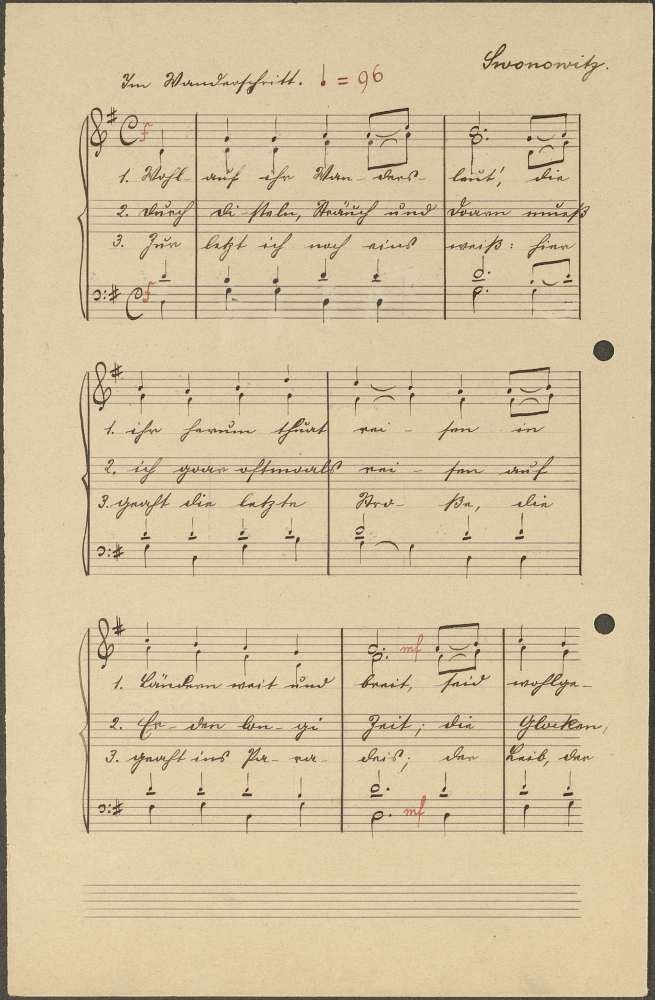 Swonowitz.
Im Wanderschritt. ♩ = 96
f
1. Wohl- auf ihr Wan- ders- leut', die
2. Durch Di- steln, Sträuch und Doarn mueß
3. Zur letzt ich noch eins weiß: hier
f
1. ihr herum thuat rei - sen in
2. ich goar oftmoals rei - sen auf
3. geaht die letzte Stro- ße, die
1. Ländern weit und breit, seid wohlge-
mf
2. Er- den lon- gi Zeit; die Glocken,
3. geaht ins Pa- ra- deis; der Leib, der
mf